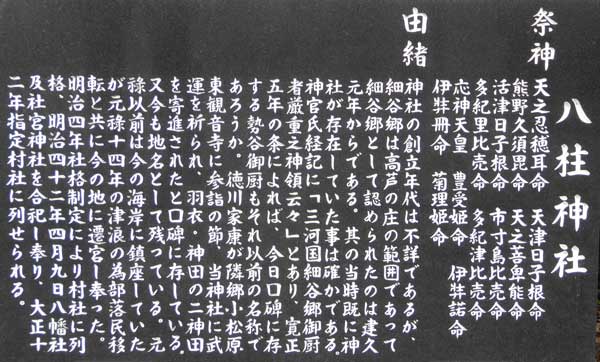 八柱神社
祭神
天之忍穂耳命　天津日子根命
熊野久須毘命　天之喜卑能命
活津日子根命　市寸島比売命
多紀里比売命　多紀津比売命
応神天皇　豊受姫命　伊弉諾命
伊弉冊命　菊理姫命
由緒
神社の創立年代は不詳であるが、
細谷郷は高芦の庄の範囲であって
細谷郷として認められたのは建久
元年からである。其の当時既に神
社が存在していた事は確かである。
神官氏経記に「三河国細谷郷御厨
者厳重之神領云々」とあり、寛正
五年の条によれば、今日口碑に存
する勢谷御厨もそれ以前の名称で
あろうか。徳川家康が隣郷小松原
東観音寺に参詣の節、当神社に武
運を祈られ、羽衣・神田の二神田
を寄進されたと口碑に存している。
又今も地名として残っている。元
禄以前は今の海岸に鎮座していた
が元禄十四年の津浪の為部落民移
転と共に今の地に遷宮し奉った。
明治四年社格制定により村社に列
格、明治四十二年四月九日八幡社
及社宮神社を合祀し奉り、大正十
二年指定村社に列せられる。